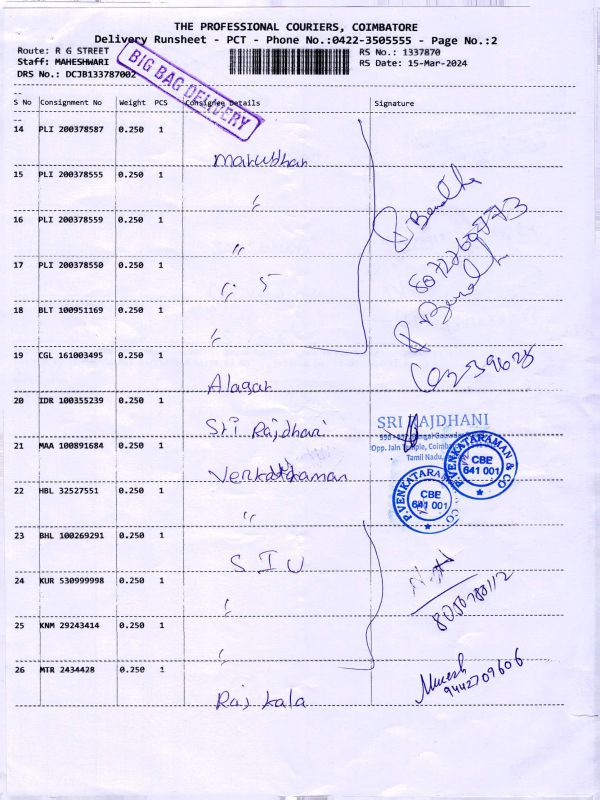 THE PROFESSIONAL COURIERS, COIMBATORE
Delivery Runsheet - PCT - Phone No.:0422-3505555 - Page No.:2
Route: R G STREET
RS No.: 1337870
Staff: MAHESHWARI
RS Date: 15-Mar-2024
DRS No.: DCJB133787002
BIG BAG DELIVERY
S No Consignment No Weight PCS Consignee Details Signature
14 PLI 200378587 0.250 1
Marudhar
15 PLI 200378555 0.250 1
"
16 PLI 200378559 0.250 1
"
17 PLI 200378550 0.250 1
" 5
18 BLT 100951169 0.250 1
"
19 CGL 161003495 0.250 1
Alagar
20 IDR 100355239 0.250 1
Sri Rajdhani
21 MAA 100891684 0.250 1
Venkatraman
22 HBL 32527551 0.250 1
"
23 BHL 100269291 0.250 1
SIU
24 KUR 530999998 0.250 1
"
25 KNM 29243414 0.250 1
"
26 MTR 2434428 0.250 1
Raj kala
8072760773
SRI RAJDHANI
Opp. Jain Temple, Coimbatore
Tamil Nadu.
P.VENKATARAMAN & CO
CBE
641 001
P.VENKATARAMAN & CO
CBE
641 001
8050780112
9442709606